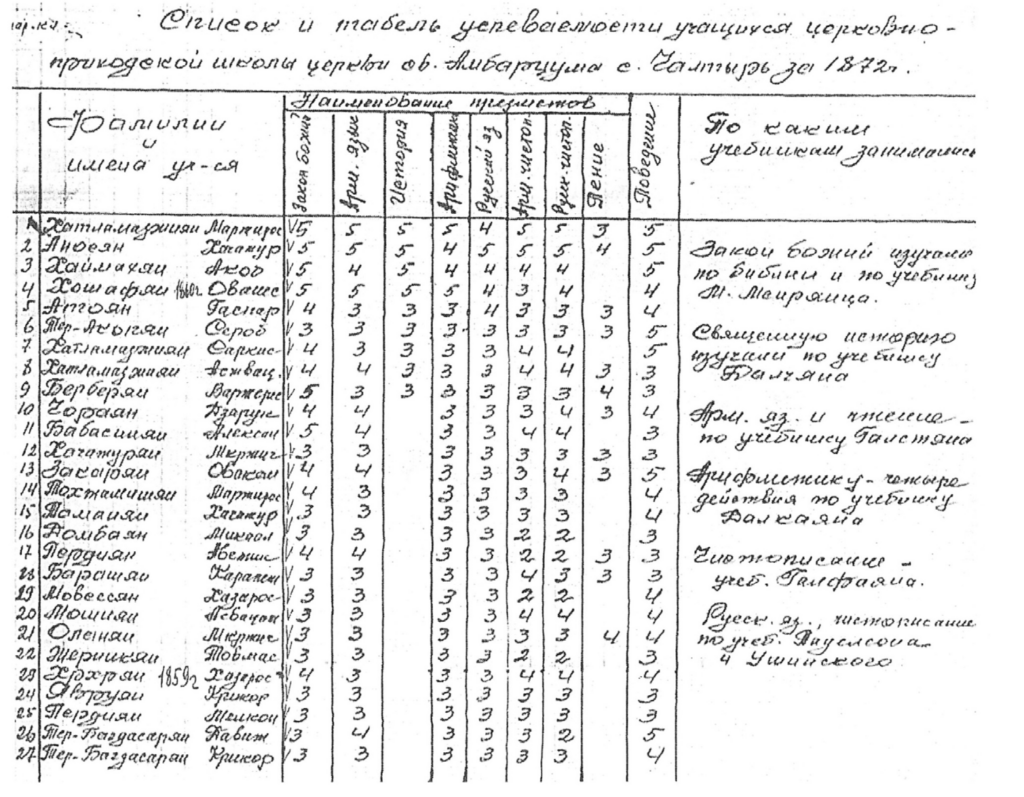 Список и табель успеваемости учащихся церковно-
приходской школы церкви св. Амбарцума с. Чалтырь за 1872г.
Фамилии и имена уч-ся | Наименование предметов | Поведение | По каким учебникам занимались
Закон божий | Арм. язык | История | Арифметик | Русский яз | Арм. чистоп. | Русск. чистоп. | Пение
1 Хатламаджиян Мартирос V 5 5 5 5 4 5 5 3 5
2 Аносян Хачатур V 5 5 5 4 5 5 5 4 5
3 Хаймахян Акоб V 5 4 5 4 4 4 4 5
4 Хошафян 1860г Ованес V 5 5 5 5 4 3 4 4
5 Атоян Гаспар V 4 3 3 3 4 3 3 3 4
6 Тер-Акопян Сероб V 3 3 3 3 3 3 3 3 5
7 Хатламаджиян Саркис V 4 3 3 3 3 4 4 5
8 Хатламаджиян Аствац. V 4 4 3 3 3 4 4 3 3
9 Берберян Вартерес V 5 3 3 3 3 3 3 4 3
10 Чораян Дзарук V 4 4 3 3 3 4 3 4
11 Бабасинян Алексан V 5 4 3 3 4 4 3
12 Хачатурян Мкртич V 3 3 3 3 3 3 3 3
13 Закарян Обаким V 4 4 3 3 3 4 3 5
14 Тохтамишян Мартирос V 4 3 3 3 3 3 4
15 Томанян Хачатур V 3 3 3 3 3 3 4
16 Домбаян Микаел V 3 3 3 3 2 2 3
17 Пердиян Аветис V 4 4 3 3 2 2 3 3
18 Барашян Карапет V 3 3 3 3 4 3 3 3
19 Мовессян Хазарос V 3 3 3 3 2 2 4
20 Мошиян Асвачат V 3 3 3 3 4 4 4
21 Оленян Мкртич V 3 3 3 3 3 3 4 4
22 Жерицкян Товмас V 3 3 3 3 2 2 3
23 Хрхрян 1859г Хазарос V 4 3 3 3 4 4 4
24 Явруян Крикор V 3 3 3 3 3 3 3
25 Пердиян Мелкон V 3 3 3 3 3 3 3
26 Тер-Багдасарян Кавит V 3 4 3 3 3 2 5
27 Тер-Багдасарян Крикор V 3 3 3 3 3 3 4
Закон божий изучали
по библии и по учебнику
М. Меиряница.
Священную историю
изучали по учебнику
Балчяна
Арм. яз. и чтение –
по учебнику Галстяна
Арифметику - четыре
действия по учебнику
Далкаяна
Чистописание –
учеб. Галфаяна.
Русск. яз., чистописание
по учеб. Паульсона
и Ушинского